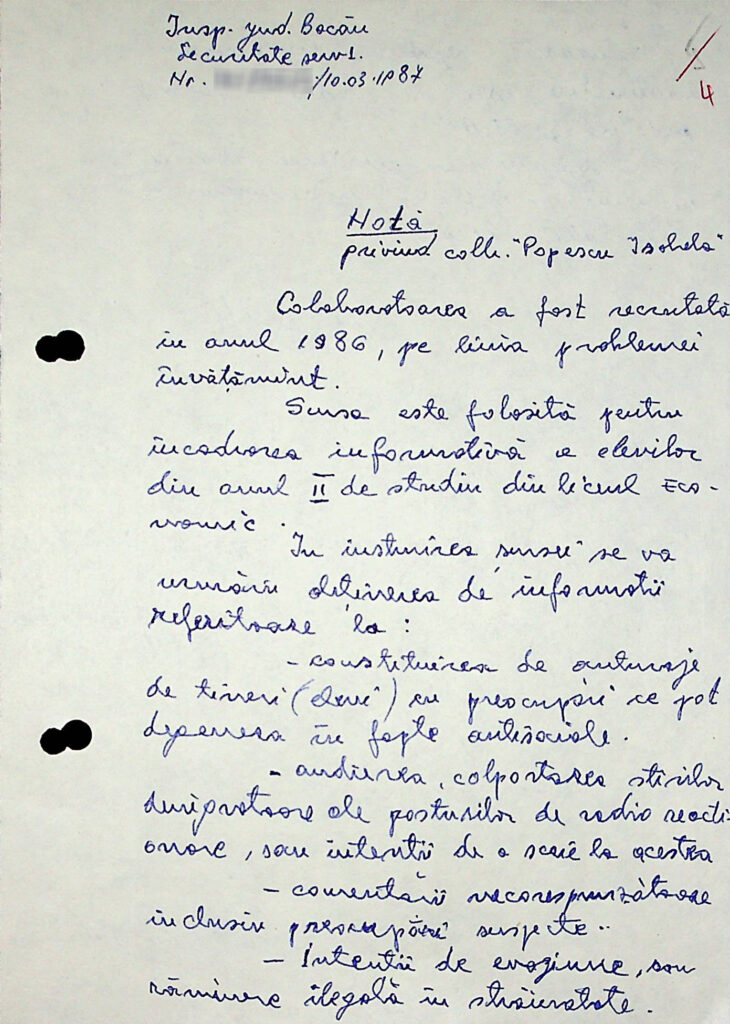 Insp. jud. Bacău
Securitate serv1.
Nr. /10.03.1987
4
Notă
privind colb. "Popescu Isabela"
Colaboratoarea a fost recrutată
în anul 1986, pe linia problemei
învățămînt.
Sursa este folosită pentru
încadrarea informativă a elevilor
din anul II de studiu din liceul Eco-
nomic.
În instruirea sursei se va
urmări obținerea de informații
referitoare la :
- constituirea de anturaje
de tineri (elevi) cu preocupări ce pot
degenera în fapte antisociale.
- audierea, colportarea știrilor
denigratoare ale posturilor de radio reacți
onare, sau intenții de a scrie la acestea
- comentarii necorespunzătoare
inclusiv preocupări suspecte..
- Intenții de evaziune, sau
rămînere ilegală în străinătate.